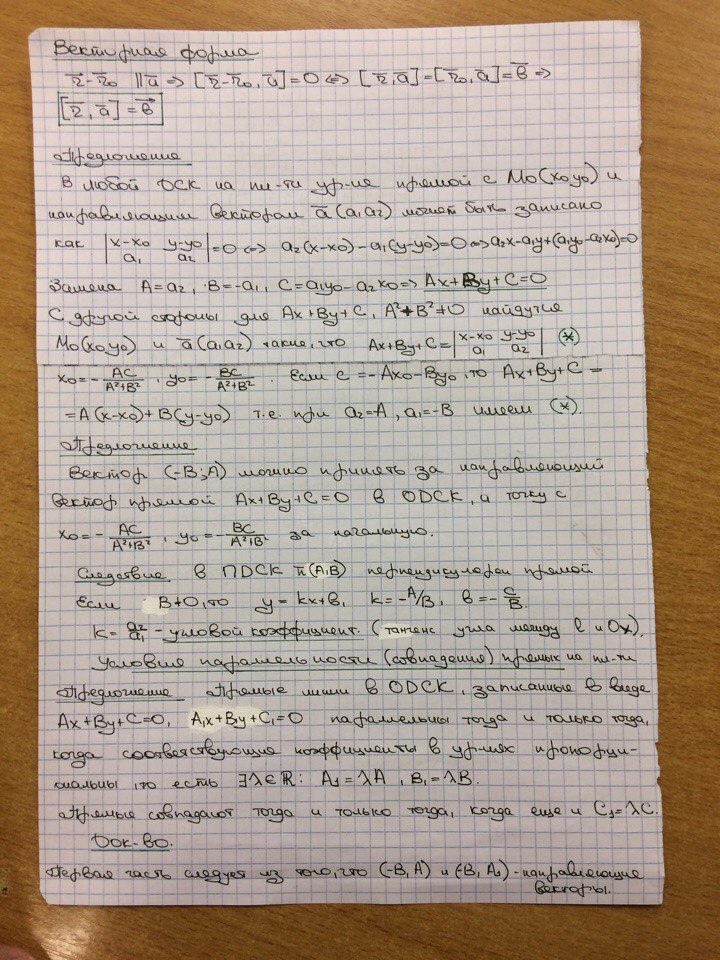 Векторная форма
r̄-r̄₀ ∥ā ⇒ [r̄-r̄₀, ā]=0 ⇔ [r̄,ā]=[r̄₀,ā]=b̄ ⇒
[r̄,ā]=b̄
Предложение
В любой ДСК на пл-ти ур-ие прямой с M₀(x₀y₀) и
направляющим вектором ā(a₁a₂) может быть записано
как |x-x₀ y-y₀; a₁ a₂|=0 ⇔ a₂(x-x₀)-a₁(y-y₀)=0⇔a₂x-a₁y+(a₁y₀-a₂x₀)=0
Замена A=a₂, B=-a₁, C=a₁y₀-a₂x₀⇒ Ax+By+C=0
С другой стороны для Ax+By+C, A²+B²≠0 найдутся
M₀(x₀y₀) и ā(a₁a₂) такие, что Ax+By+C=|x-x₀ y-y₀; a₁ a₂| (*)
x₀=-AC/(A²+B²), y₀=-BC/(A²+B²). Если c=-Ax₀-By₀, то Ax+By+C=
=A(x-x₀)+B(y-y₀) т.е. при a₂=A, a₁=-B имеем (*).
Предложение
Вектор (-B;A) можно принять за направляющий
вектор прямой Ax+By+C=0 в ОДСК, а точку с
x₀=-AC/(A²+B²), y₀=-BC/(A²+B²) за начальную.
Следствие В ПДСК n̄(A,B) перпендикулярен прямой
Если B≠0, то y=kx+b, k=-A/B, b=-C/B.
k=a₂/a₁-угловой коэффициент. (тангенс угла между l и Ox).
Условие параллельности (совпадения) прямых на пл-ти
Предложение Прямые линии в ОДСК, записанные в виде
Ax+By+C=0, A₁x+B₁y+C₁=0 параллельны тогда и только тогда,
когда соответствующие коэффициенты в ур-иях пропорци-
ональны, то есть ∃λ∈ℝ: A₁=λA, B₁=λB.
Прямые совпадают тогда и только тогда, когда еще и C₁=λC.
Док-во.
Первая часть следует из того, что (-B,A) и (-B, A₁)-направляющие
векторы.